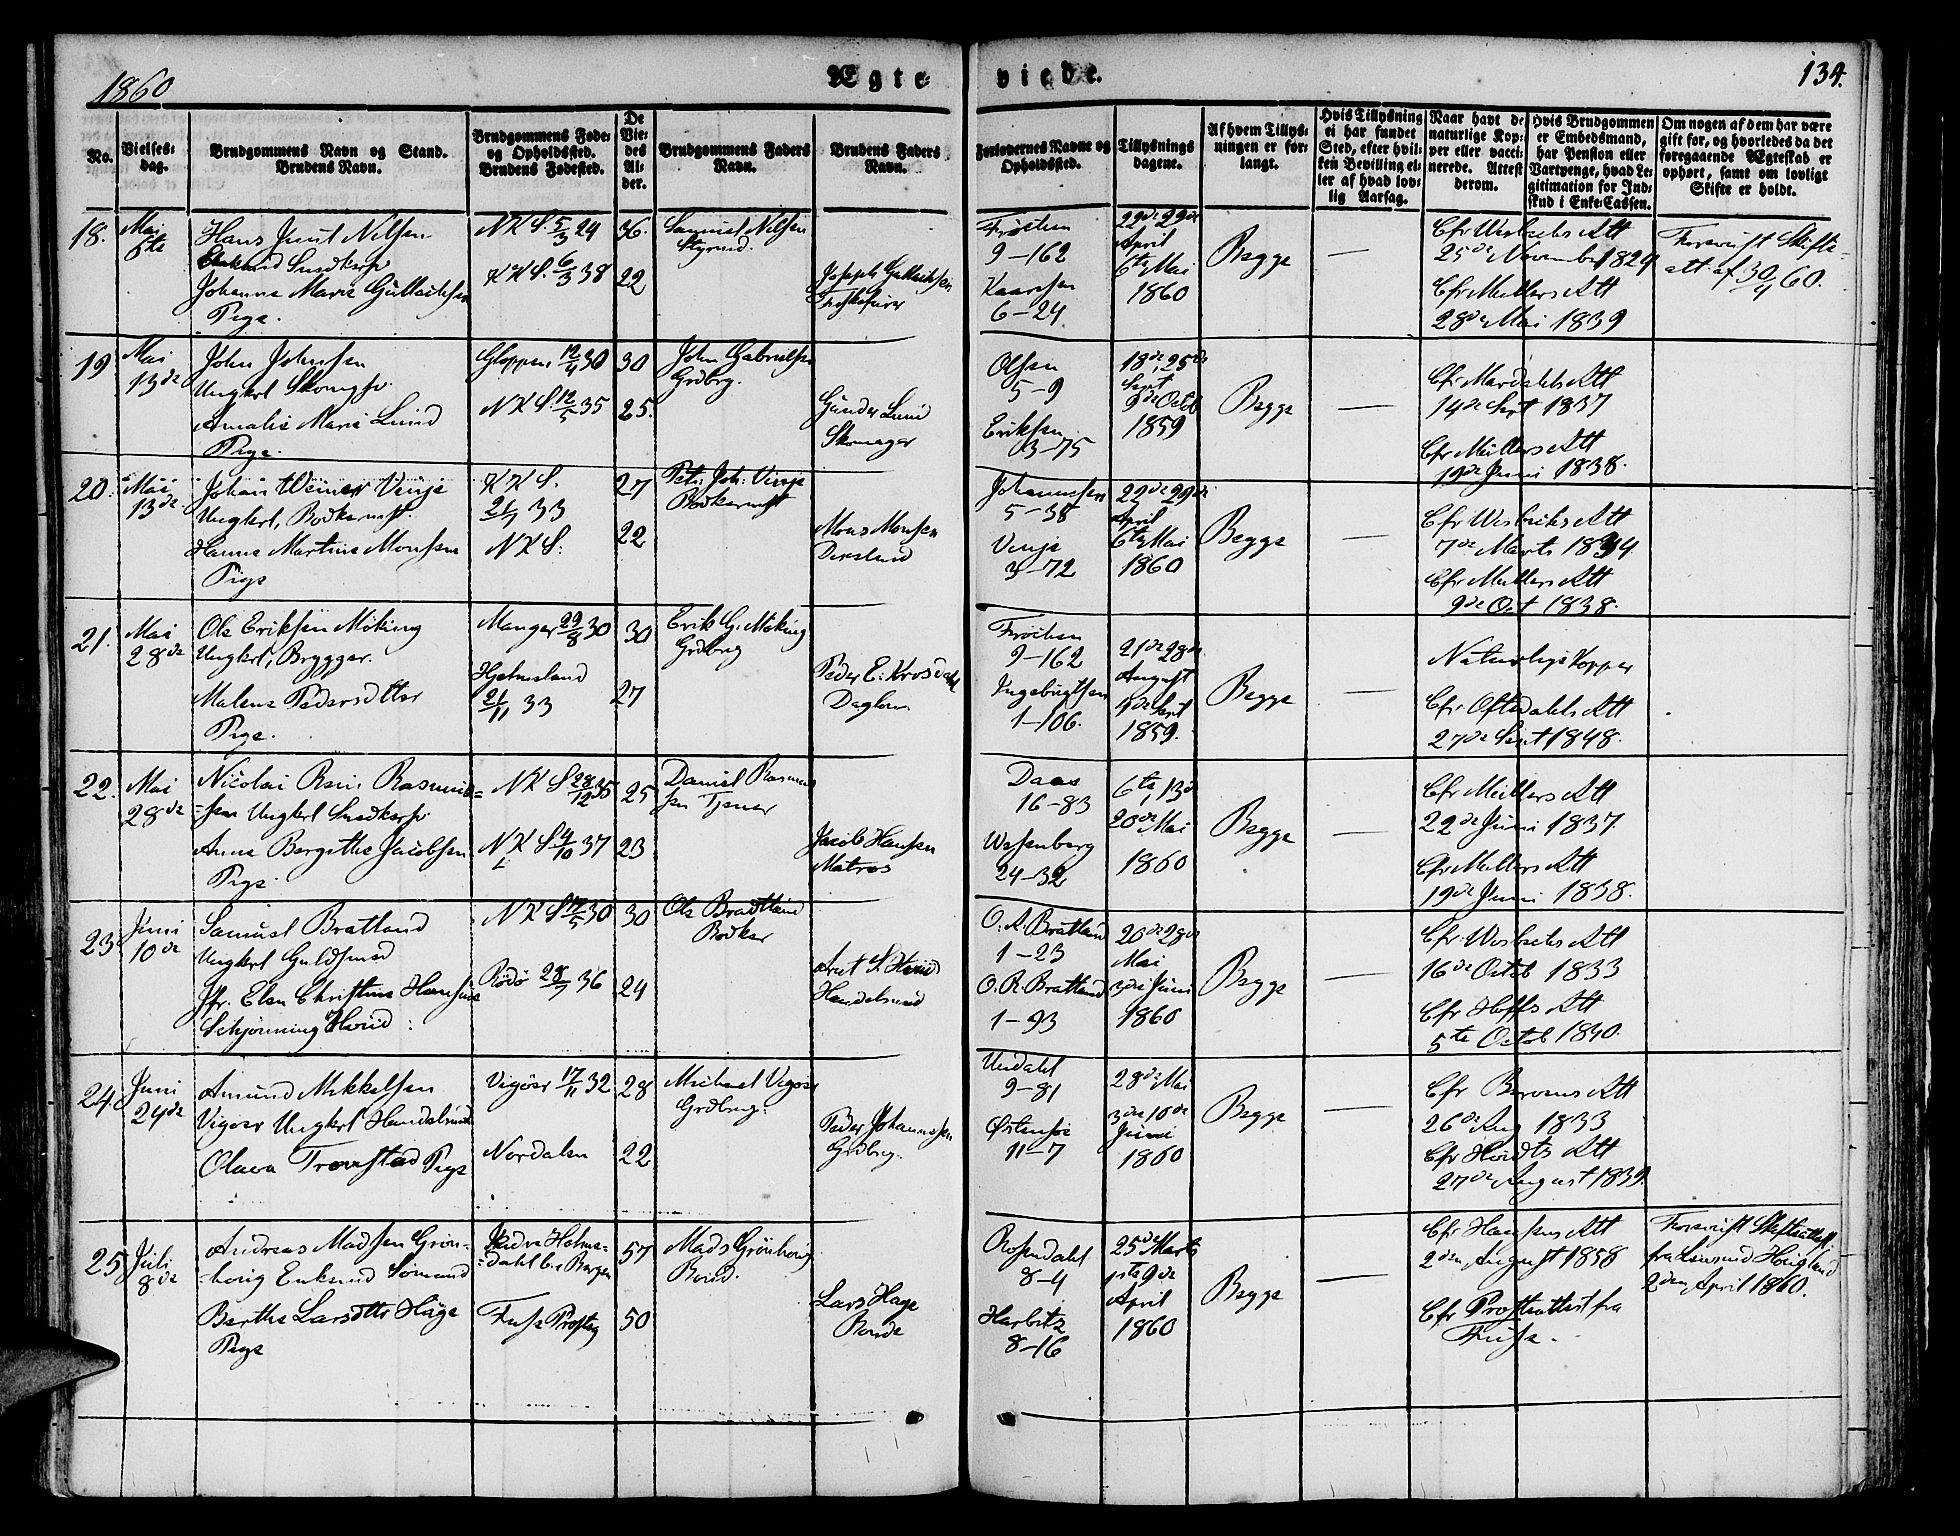 1860
Ægte-
viede.
134.
No.
Vielses-
dag.
Brudgommens Navn og Stand.
Brudens Navn.
Brudgommens Føde-
og Opholdssted.
Brudens Fødested.
De
Vie-
des
Al-
der.
Brudgommens Faders
Navn.
Brudens Faders
Navn.
Forlovernes Navne og
Opholdssted.
Tillysnings
dagene.
Af hvem Tillys-
ningen er for-
langt.
Hvis Tillysning
ei har fundet
Sted, efter hvil-
ken Bevilling el-
ler af hvad lov-
lig Aarsag.
Naar havt de
naturlige Kop-
per eller vacci-
nerede. Attest
derom.
Hvis Brudgommen
er Embedsmand,
har Pension eller
Vartpenge, hvad Le-
gitimation for Ind-
skud i Enke-Cassen.
Om nogen af dem har være
gift før, og hvorledes da det
foregaaende Ægteskab er
ophørt, samt om lovligt
Skifte er holdt.
18.
Mai
6te
Hans Juul Nilsen
Johanne Marie Gullachsen
Pige.
NKS. 5/3 24
KKS. 6/3 38
36.
22
Samuel Nilsen
Joseph Gullachsen
Frøchen
9-162
Kaarsen
6-24
22de 29de
April
6te Mai
1860
Begge
Cfr Wesbeks Att
25de November 1824
Cfr Mullers Att
28de Mai 1839
Forevist Skifte-
att af 30/4 60.
19
Mai
13de
John Johnsen
Ungkrl Skomgsv.
Amalie Marie Lund
Pige.
Gloppen 12/4 30
NKS 12/5 35
30
25.
John Gabrielsen
Grdbrg.
Gunder Lund
Skomager
Olsen
5-9
Eriksen
3-75
18de, 25de
Sept
9de Octb
1859
Begge
Cfr Mardahls Att
14de Sept 1837
Cfr Müllers Att
19de Juni 1838.
20.
Mai
13de
Johan Werner Vinje
Ungkrl, Bødkermst.
Hanne Martine Monsen
Pige
KKS.
21/7 33
NKS.
27
22
Petr. Joh. Vinje
Bødkermst
Mons Monsen
Johannesen
5-38
Vinje
3-72
22de 29de
April
6te Mai
1860
Begge
7de Marts 1834
Cfr Mullers Att
9de Oct 1838.
21.
Mai
28de
Ole Eriksen Møking
Ungkrl, Brygger.
Malene Pedersdtter
Pige.
Manger 29/8 30
Hjelmeland
21/11 33
30
27
Erik G. Møking
Grdbrg
Peder E. Krosdahl
Frøchen
9-162
Ingebrigtsen
1-106.
21de 28de
August
4de Sept
1859.
Begge
Naturlige Kopper
Cfr Oftedahls Att
27de Sept 1848.
22.
Mai
28de
Nicolai Rasmus-
=sen Ungkrl Snedkersv.
Anne Bergithe Jacobsen
Pige
NKS 28/12 35
NKS 4/10 37
25
23
Daniel Rasmus
sen Tjener
Jacob Hansen
Matros
Daae
16-83
Wesenberg
24-32
6te, 13de
20de Mai
1860
Begge
Cfr Müllers Att
22de Juni 1837.
Cfr Mullers Att
19de Juni 1838.
23
Juni
10de
Samuel Bratland
Ungkrl Guldsmed
Jfr. Elen Christine Hansine
Schjønning Hvid
NKS 17/5 30
Rödö 28/7 36
30
24
Ole Brattland
Bødker
Arnt S. Hvid
Handelsmd
O. A. Bratland
1-23
O. R. Brattland
1-93
20de 28de
Mai
3die Juni
1860
Begge
16de Octb 1833
Cfr Hoffs Att
5te Octob 1840.
24.
Juni
24de
Amund Mikkelsen
Vigøer Ungkrl Handelsmd
Olava Tronstad Pige
Vigöer 17/11 32
Nordalen
28
22
Michael Vigøer
Grdbrg.
Peder Johannesen
Grdbrg.
Undahl
9-81
Østensøe
11-7
28de Mai
3die 10de
Juni
1860
Begge
26de Aug 1833
Cfr Hvidts Att
27de August 1839.
25
Juli
8de
Andreas Madsen Grøn-
=borig Enkmd Sømand
Berthe Larsdtter Hage
Pige
Fuse Prstg
57
50
Mads Grönborig
Bond.
Lars Hage
Bonde
Rosendahl
8-4
Harbitz
8-16
25de Marts
1ste 9de
April
1860
Begge
Cfr Hansens Att
2den August 1858
Cfr Prestattest fra
Fuse.
Forevist Skifteattest
2den April 1860.